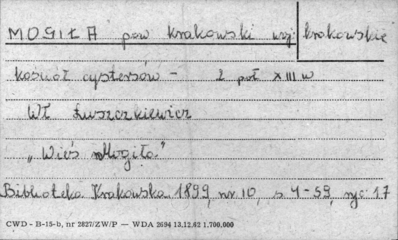 MOGIŁA pow krakowski woj. krakowskie
kościół cystersów - 2 poł XIII w
Wł Łuszczkiewicz
„Wieś Mogiła"
Biblioteka Krakowska 1899, nr 10, s 4-59, ryc 17
CWD - B-15-b, nr 2827/ZW/P — WDA 2694 13.12.62 1.700.000